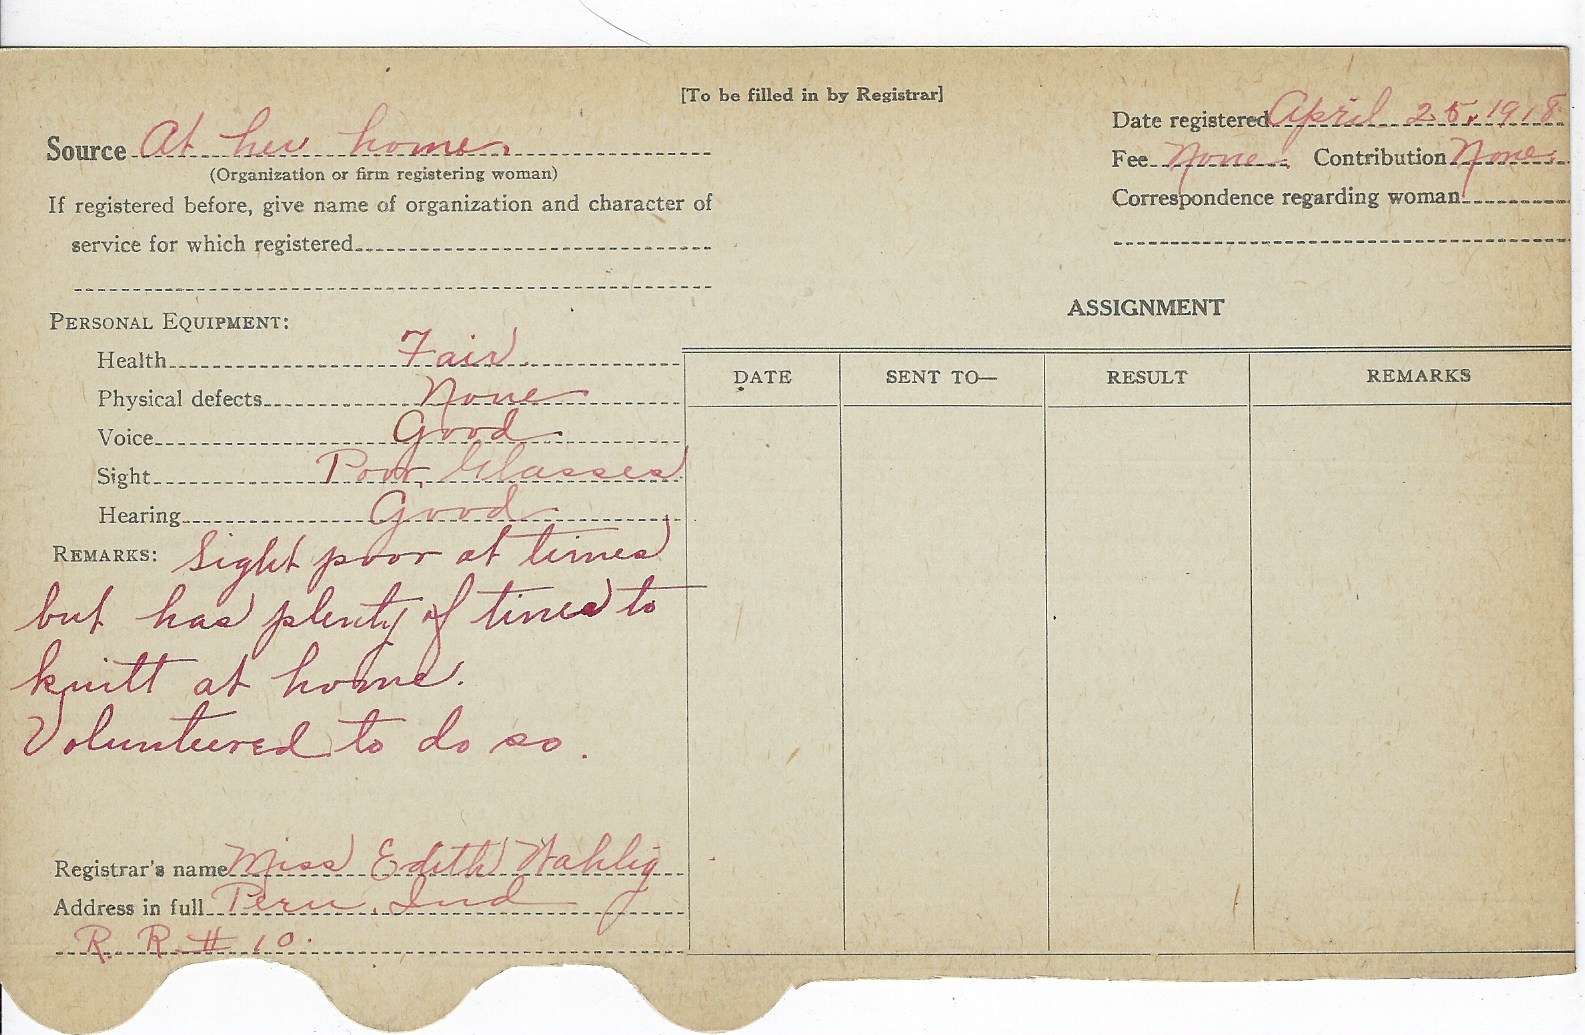 [To be filled in by Registrar]
Source At her home.
(Organization or firm registering woman)
If registered before, give name of organization and character of
service for which registered
Date registered April 25, 1918.
Fee None. Contribution None.
Correspondence regarding woman
PERSONAL EQUIPMENT:
Health Fair.
Physical defects None
Voice Good.
Sight Poor, Glasses
Hearing Good
REMARKS: Sight poor at times
but has plenty of times to
knitt at home.
Volunteered to do so.
Registrar's name Miss Edith Wahlig
Address in full Peru, Ind
R. R. # 10.
ASSIGNMENT
DATE SENT TO— RESULT REMARKS